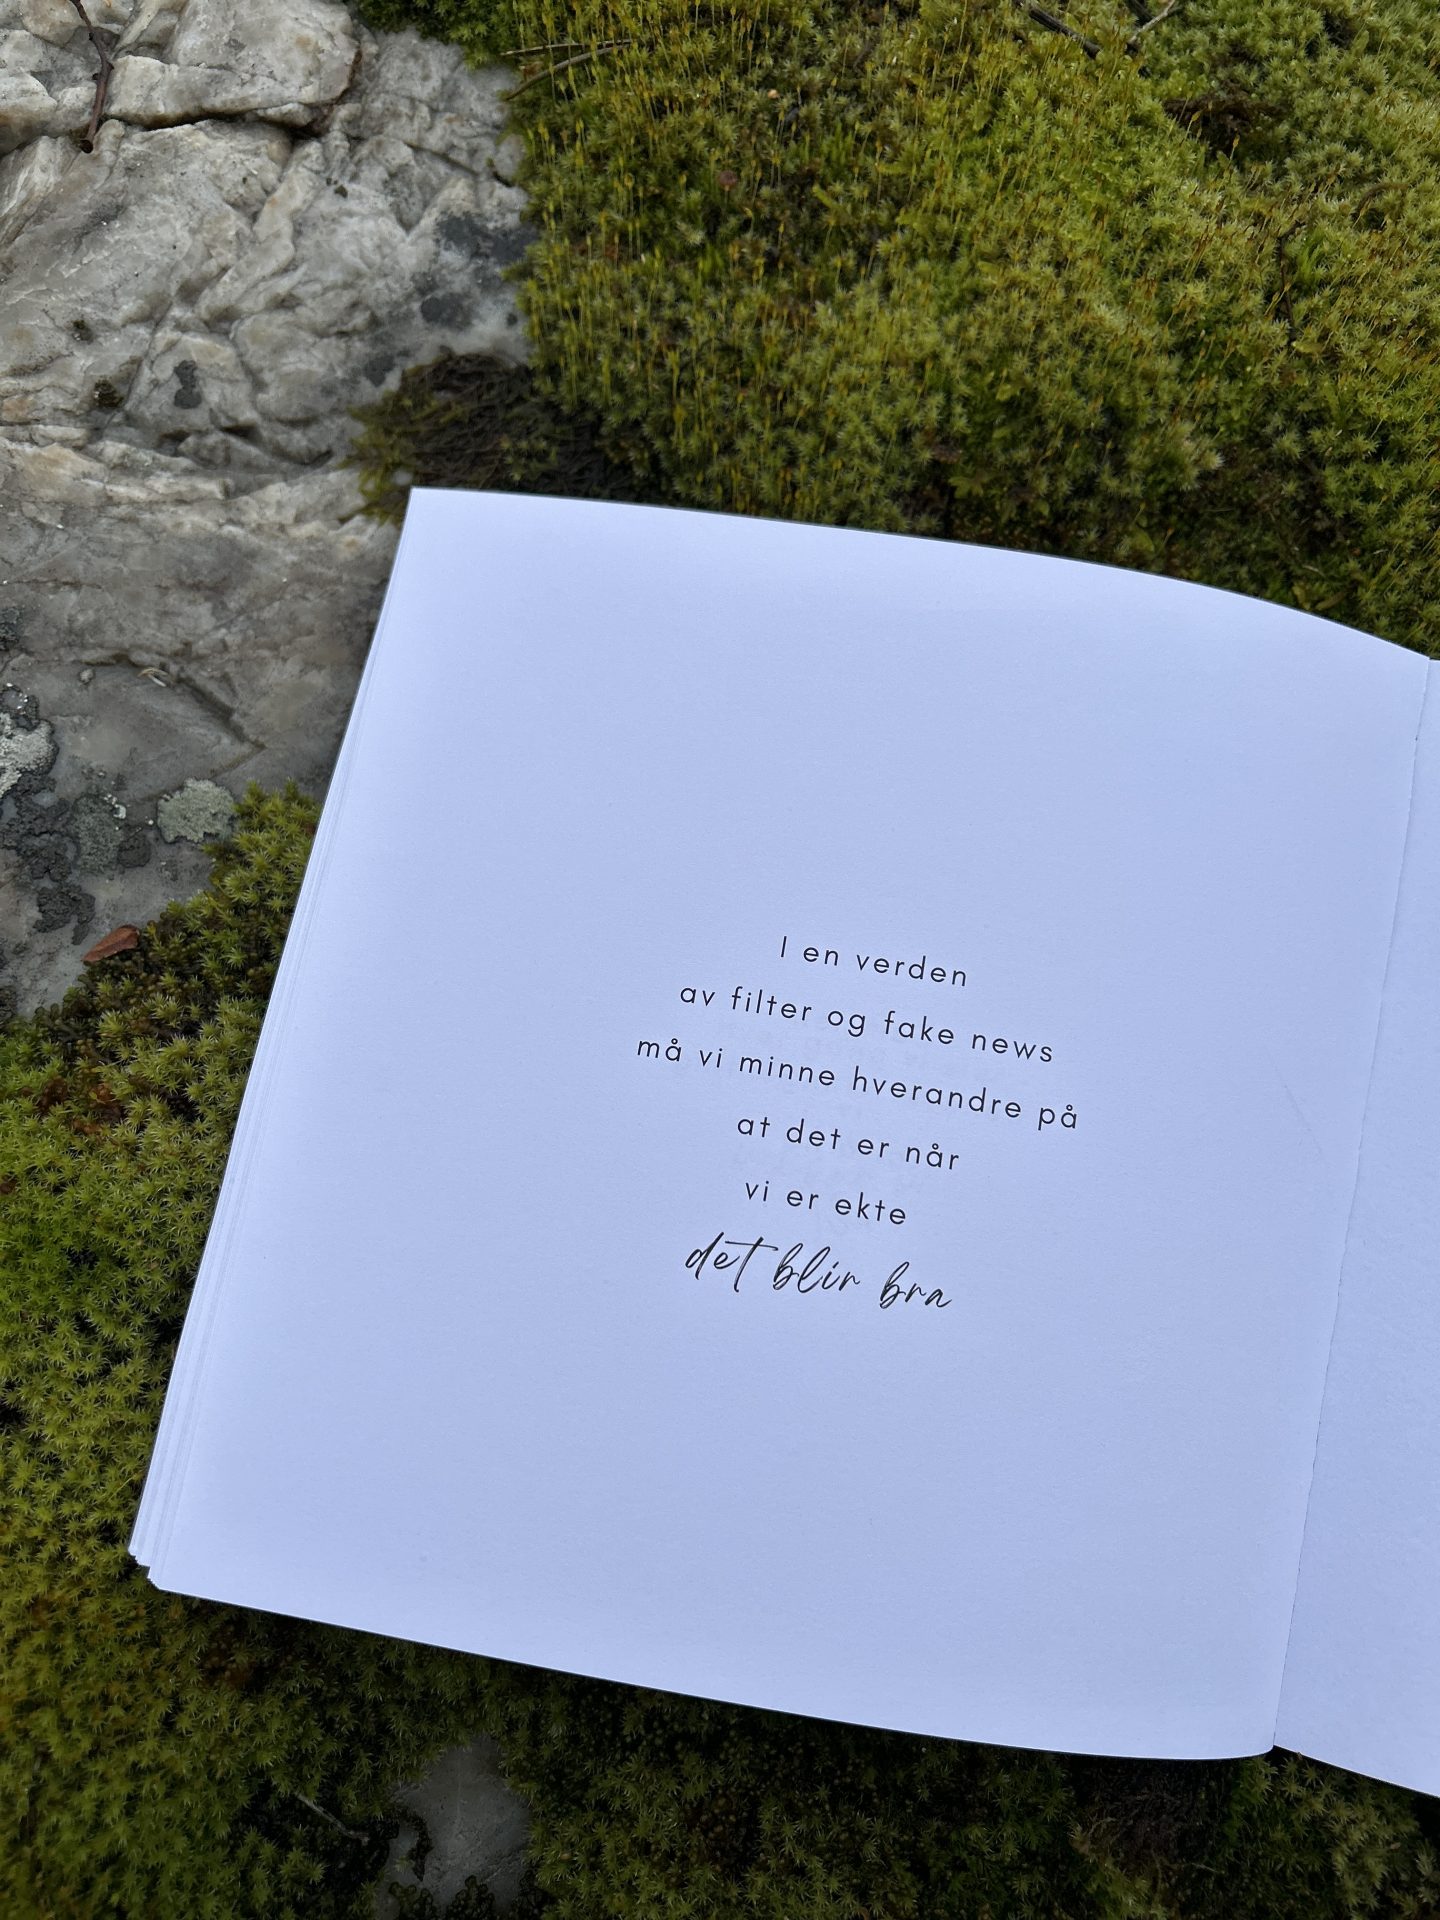 I en verden
av filter og fake news
må vi minne hverandre på
at det er når
vi er ekte
det blir bra